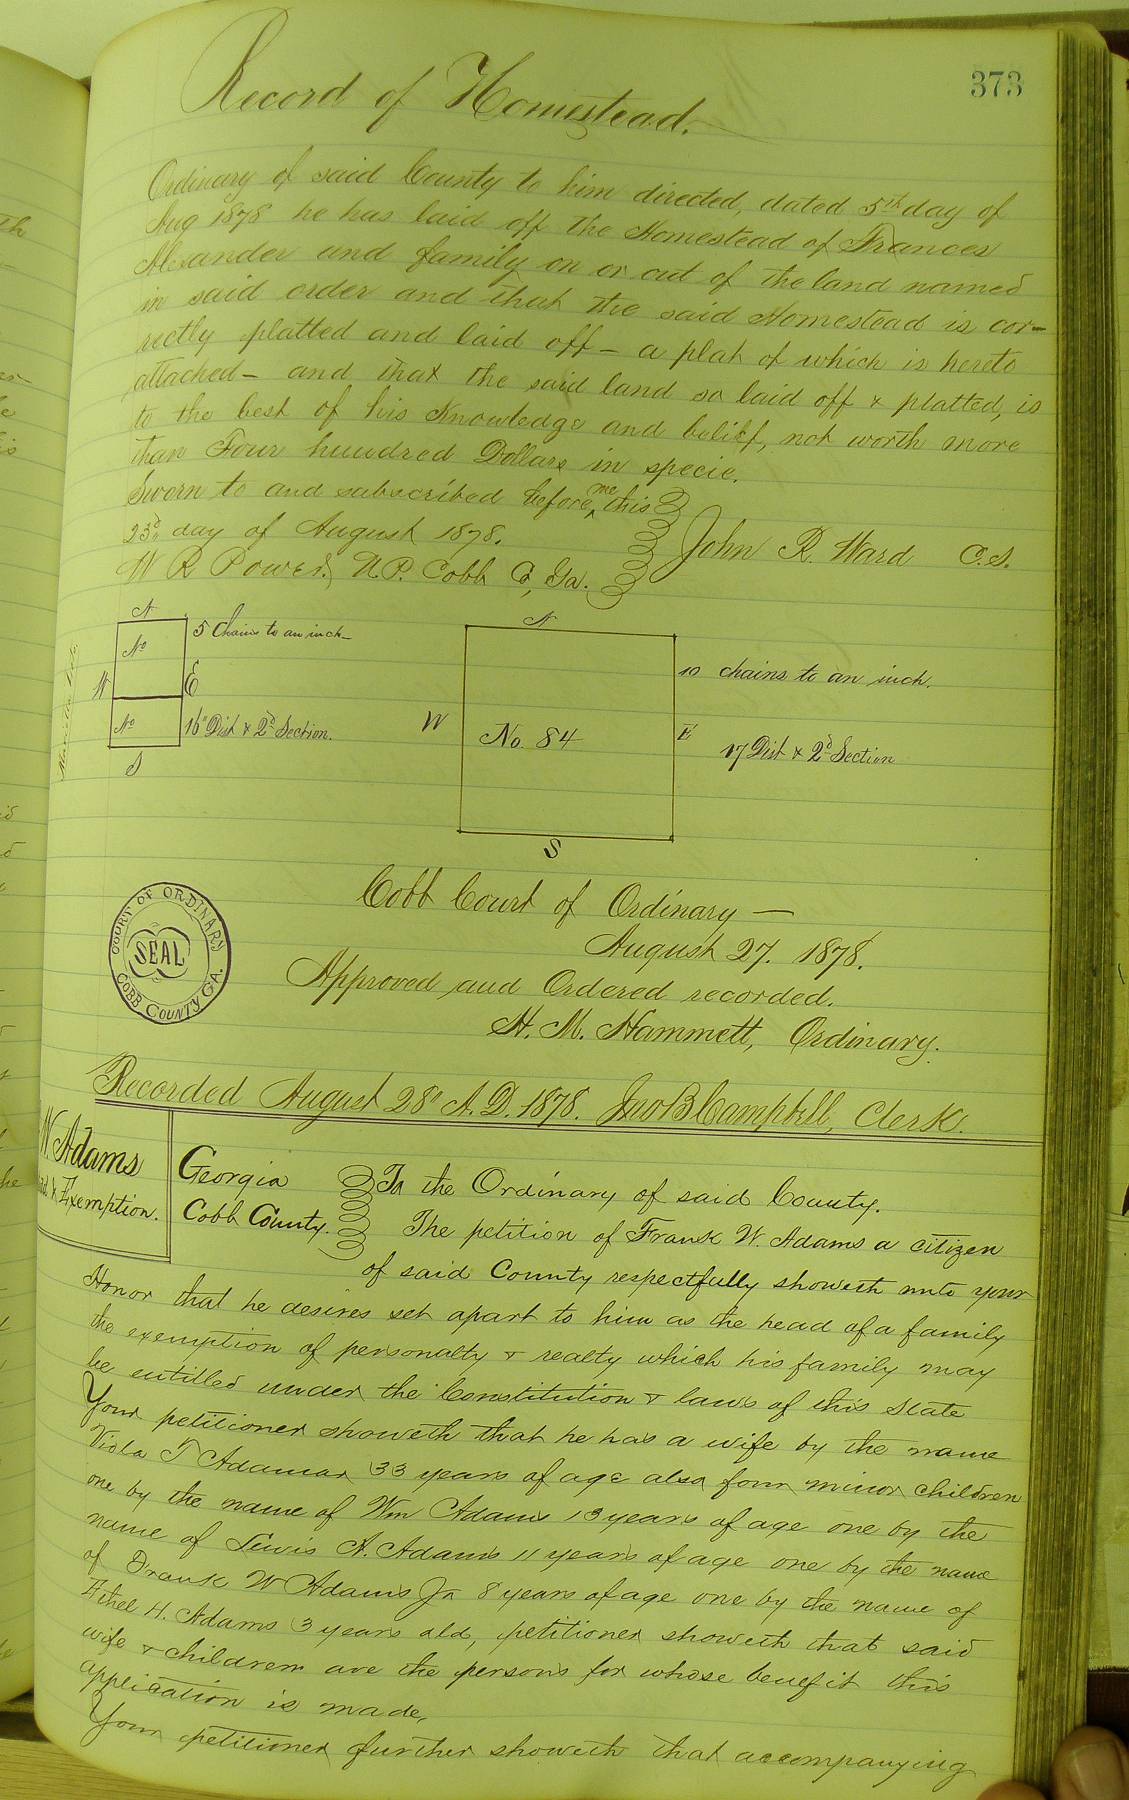 373
Record of Homestead.
Ordinary of said County to him directed, dated 5th day of
Aug 1878 he has laid off the Homestead of Frances
Alexander and family on or out of the land named
in said order and that the said Homestead is cor-
rectly platted and laid off – a plat of which is hereto
attached – and that the said land so laid off & platted, is
to the best of his Knowledge and belief, not worth more
than Four hundred Dollars in specie.
Sworn to and subscribed before me this
23d day of August 1878.
John R. Ward C.S.
W R Power, N.P. Cobb Co, Ga.
N
No
5 Chains to an inch –
W
E
No
16th Dist & 2d Section.
S
N
10 chains to an inch.
W
No. 84
E
17 Dist & 2d Section
S
Cobb Court of Ordinary —
August 27. 1878.
COURT OF ORDINARY
SEAL
COBB COUNTY GA.
Approved and Ordered recorded.
H. M. Hammett, Ordinary.
Recorded August 28th A.D. 1878. Jno B Campbell, Clerk.
W Adams
& Exemption.
Georgia
Cobb County.
To the Ordinary of said County.
The petition of Frank W. Adams a citizen
of said County respectfully showeth unto your
Honor that he desires set apart to him as the head of a family
the exemption of personalty & realty which his family may
be entitled under the Constitution & laws of this State
Your petitioner showeth that he has a wife by the name
Viola T Adamas 33 years of age also four minor children
one by the name of Wm Adams 13 years of age one by the
name of Lewis A. Adams 11 years of age one by the name
of Frank W Adams Jr 8 years of age one by the name of
Ethel H. Adams 3 years old, petitioner showeth that said
wife & children are the persons for whose benefit this
application is made,
Your petitioner further showeth that accompanying